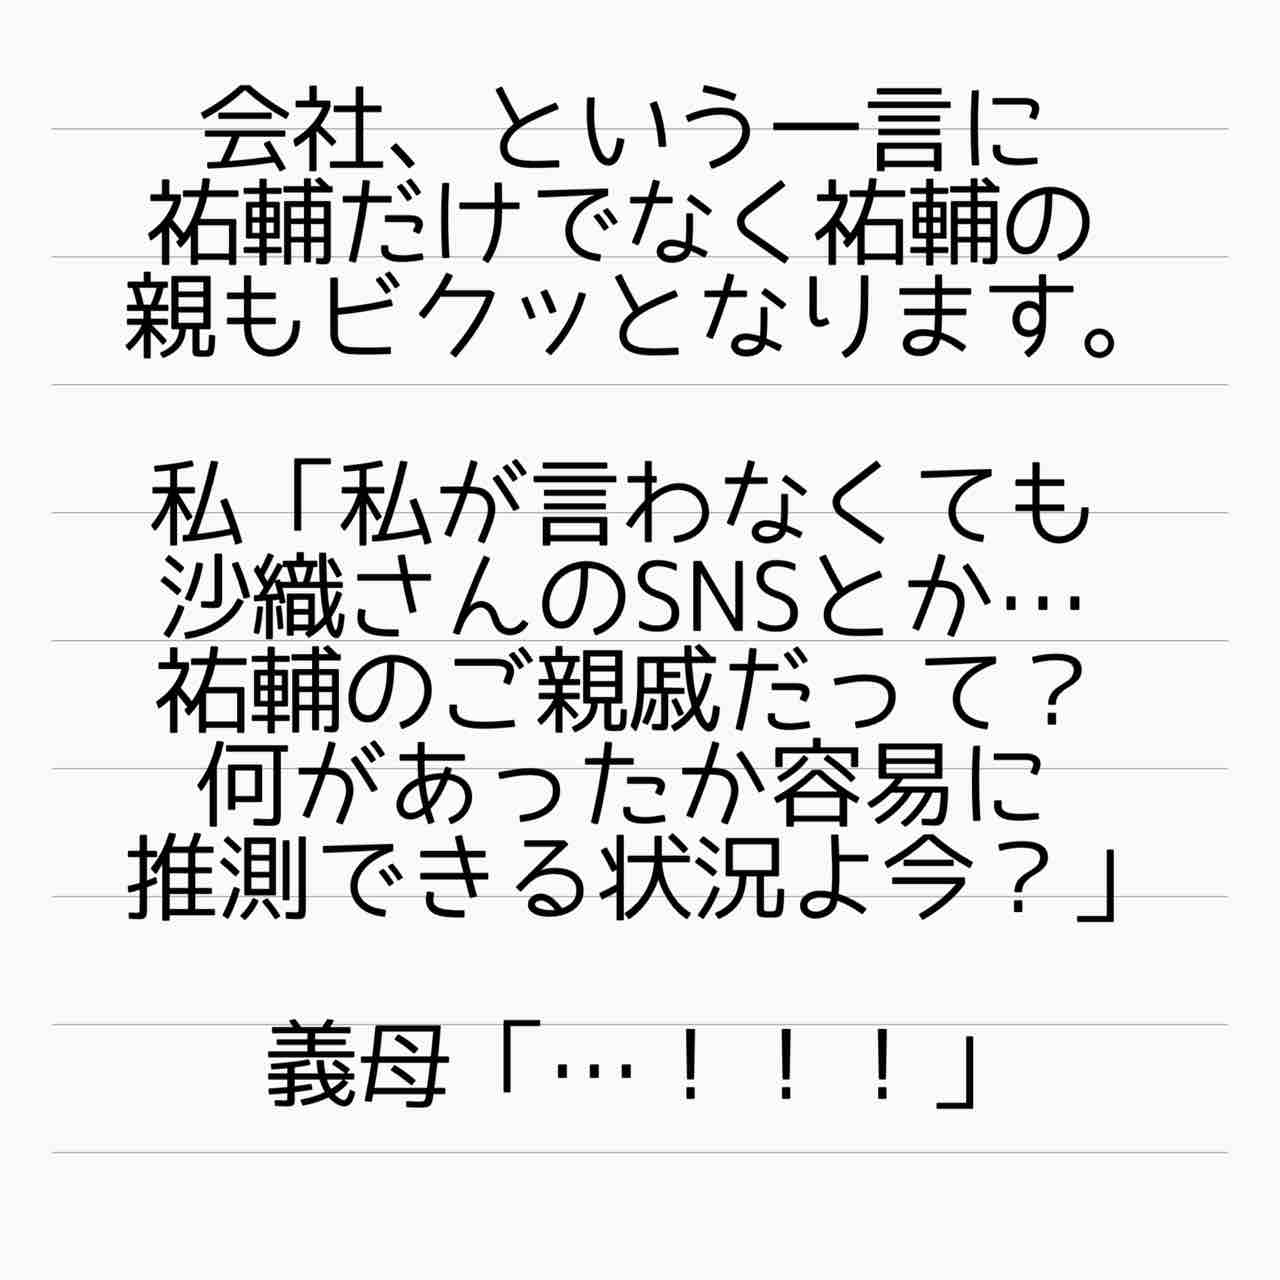 会社、という一言に
祐輔だけでなく祐輔の
親もビクッとなります。
私「私が言わなくても
沙織さんのSNSとか…
祐輔のご親戚だって？
何があったか容易に
推測できる状況よ今？」
義母「…！！！」